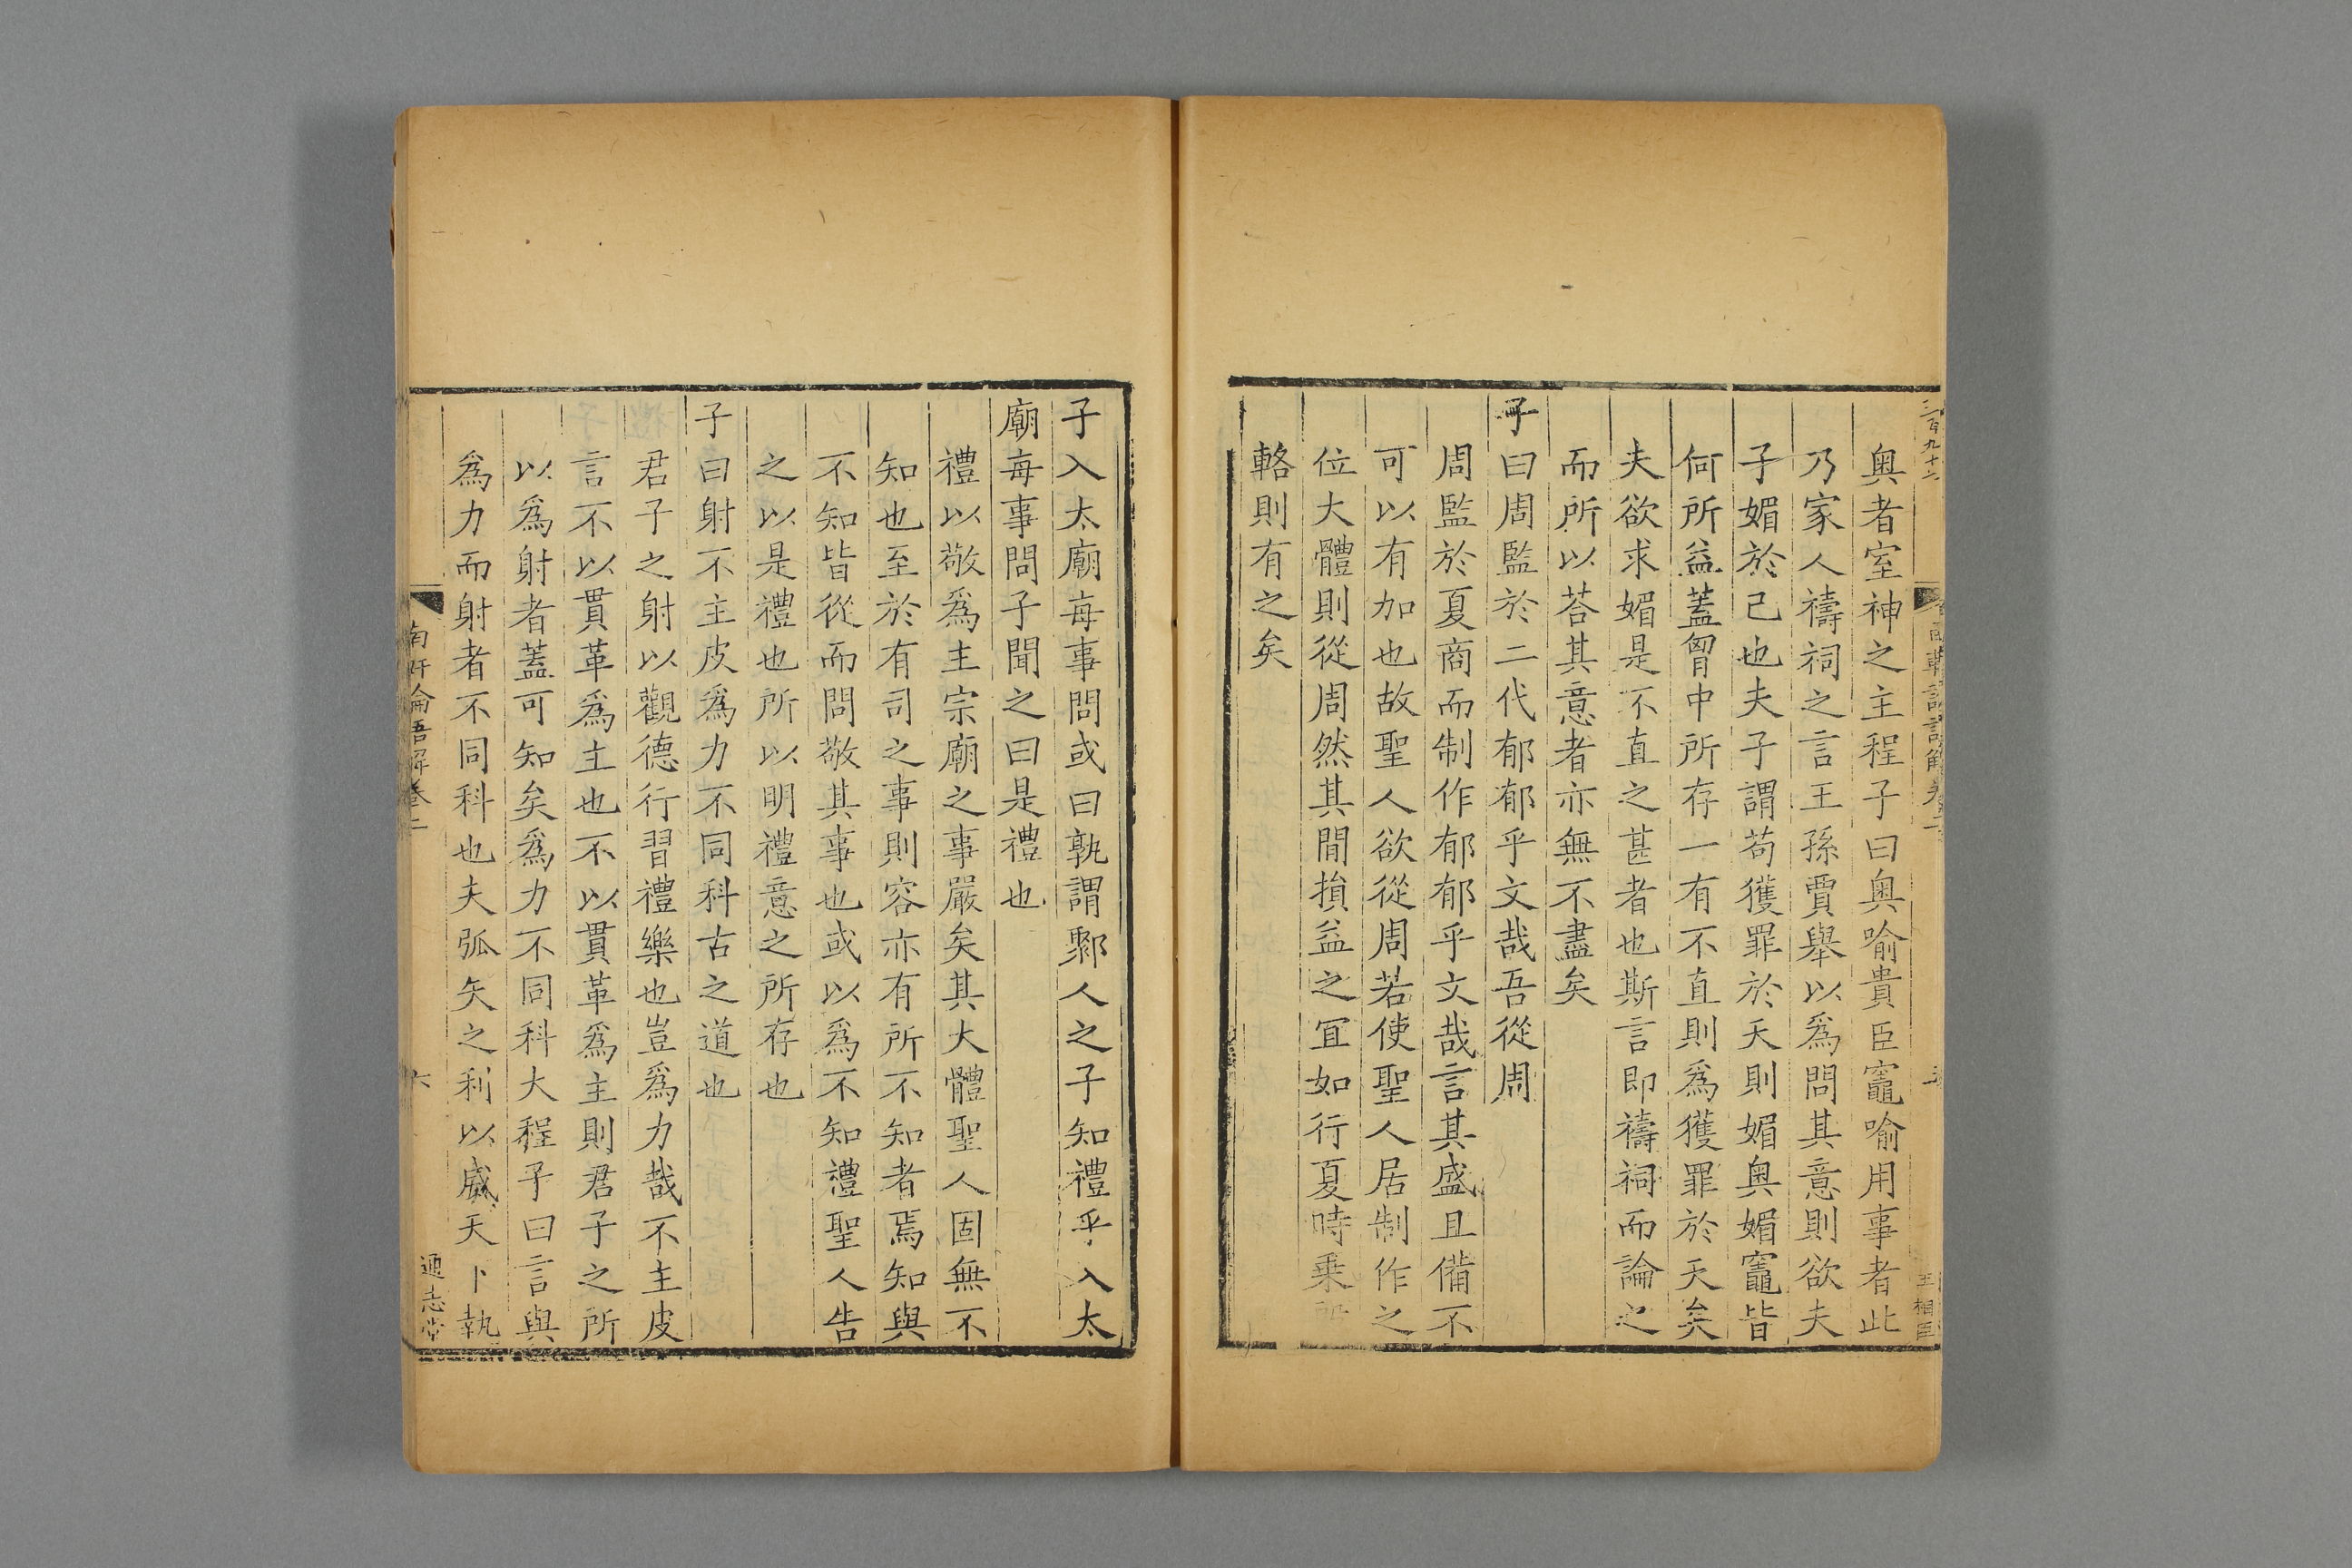 三百九十六
王相臣
奥者室神之主程子曰奥喻貴臣竈喻用事者此
乃家人禱祠之言王孫賈舉以爲問其意則欲夫
子媚於己也夫子謂苟獲罪於天則媚奥媚竈皆
何所益蓋胷中所存一有不直則爲獲罪於天矣
夫欲求媚是不直之甚者也斯言即禱祠而論之
而所以荅其意者亦無不盡矣
子曰周監於二代郁郁乎文哉吾從周
周監於夏商而制作郁郁乎文哉言其盛且備不
可以有加也故聖人欲從周若使聖人居制作之
位大體則從周然其閒損益之宜如行夏時乗
輅則有之矣
子入太廟每事問或曰孰謂鄹人之子知禮乎入太
廟每事問子聞之曰是禮也
禮以敬爲主宗廟之事嚴矣其大體聖人固無不
知也至於有司之事則容亦有所不知者焉知與
不知皆從而問敬其事也或以爲不知禮聖人告
之以是禮也所以明禮意之所存也
子曰射不主皮爲力不同科古之道也
君子之射以觀德行習禮樂也豈爲力哉不主皮
言不以貫革爲主也不以貫革爲主則君子之所
以爲射者蓋可知矣爲力不同科大程子曰言與
爲力而射者不同科也夫弧矢之利以威天下執
南軒論語解卷二
六
通志堂